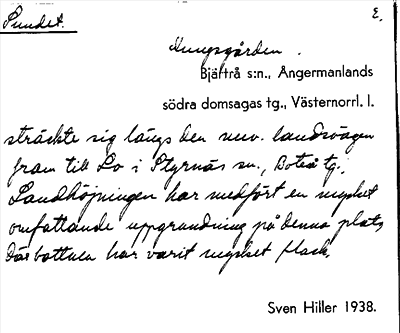 Sundet. E.
Kungsgården.
Bjärtrå s:n., Ångermanlands
södra domsagas tg., Västernorrl. l.
sträckte sig längs den nuv. landsvägen
fram till Lo i Styrnäs sn., Boteå tg.,
Landhöjningen har medfört en mycket
omfattande uppgrundning på denna plats,
där bottnen har varit mycket flack.
Sven Hiller 1938.